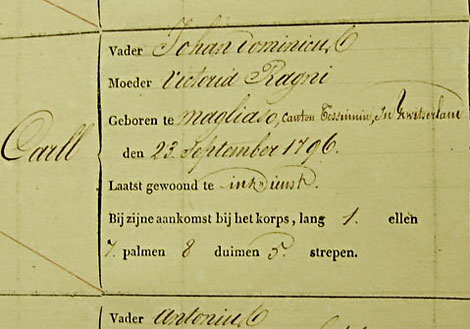 Vader Johan Dominicus C
Moeder Victoria Ragni
Geboren te magliaso, canton Tessinnin, In Zwitserland
Carll
den 23. September 1796.
Laatst gewoond te in 's Dienst.
Bij zijne aankomst bij het korps, lang 1. ellen
7. palmen 8 duimen 5. strepen.
Vader Antonius C